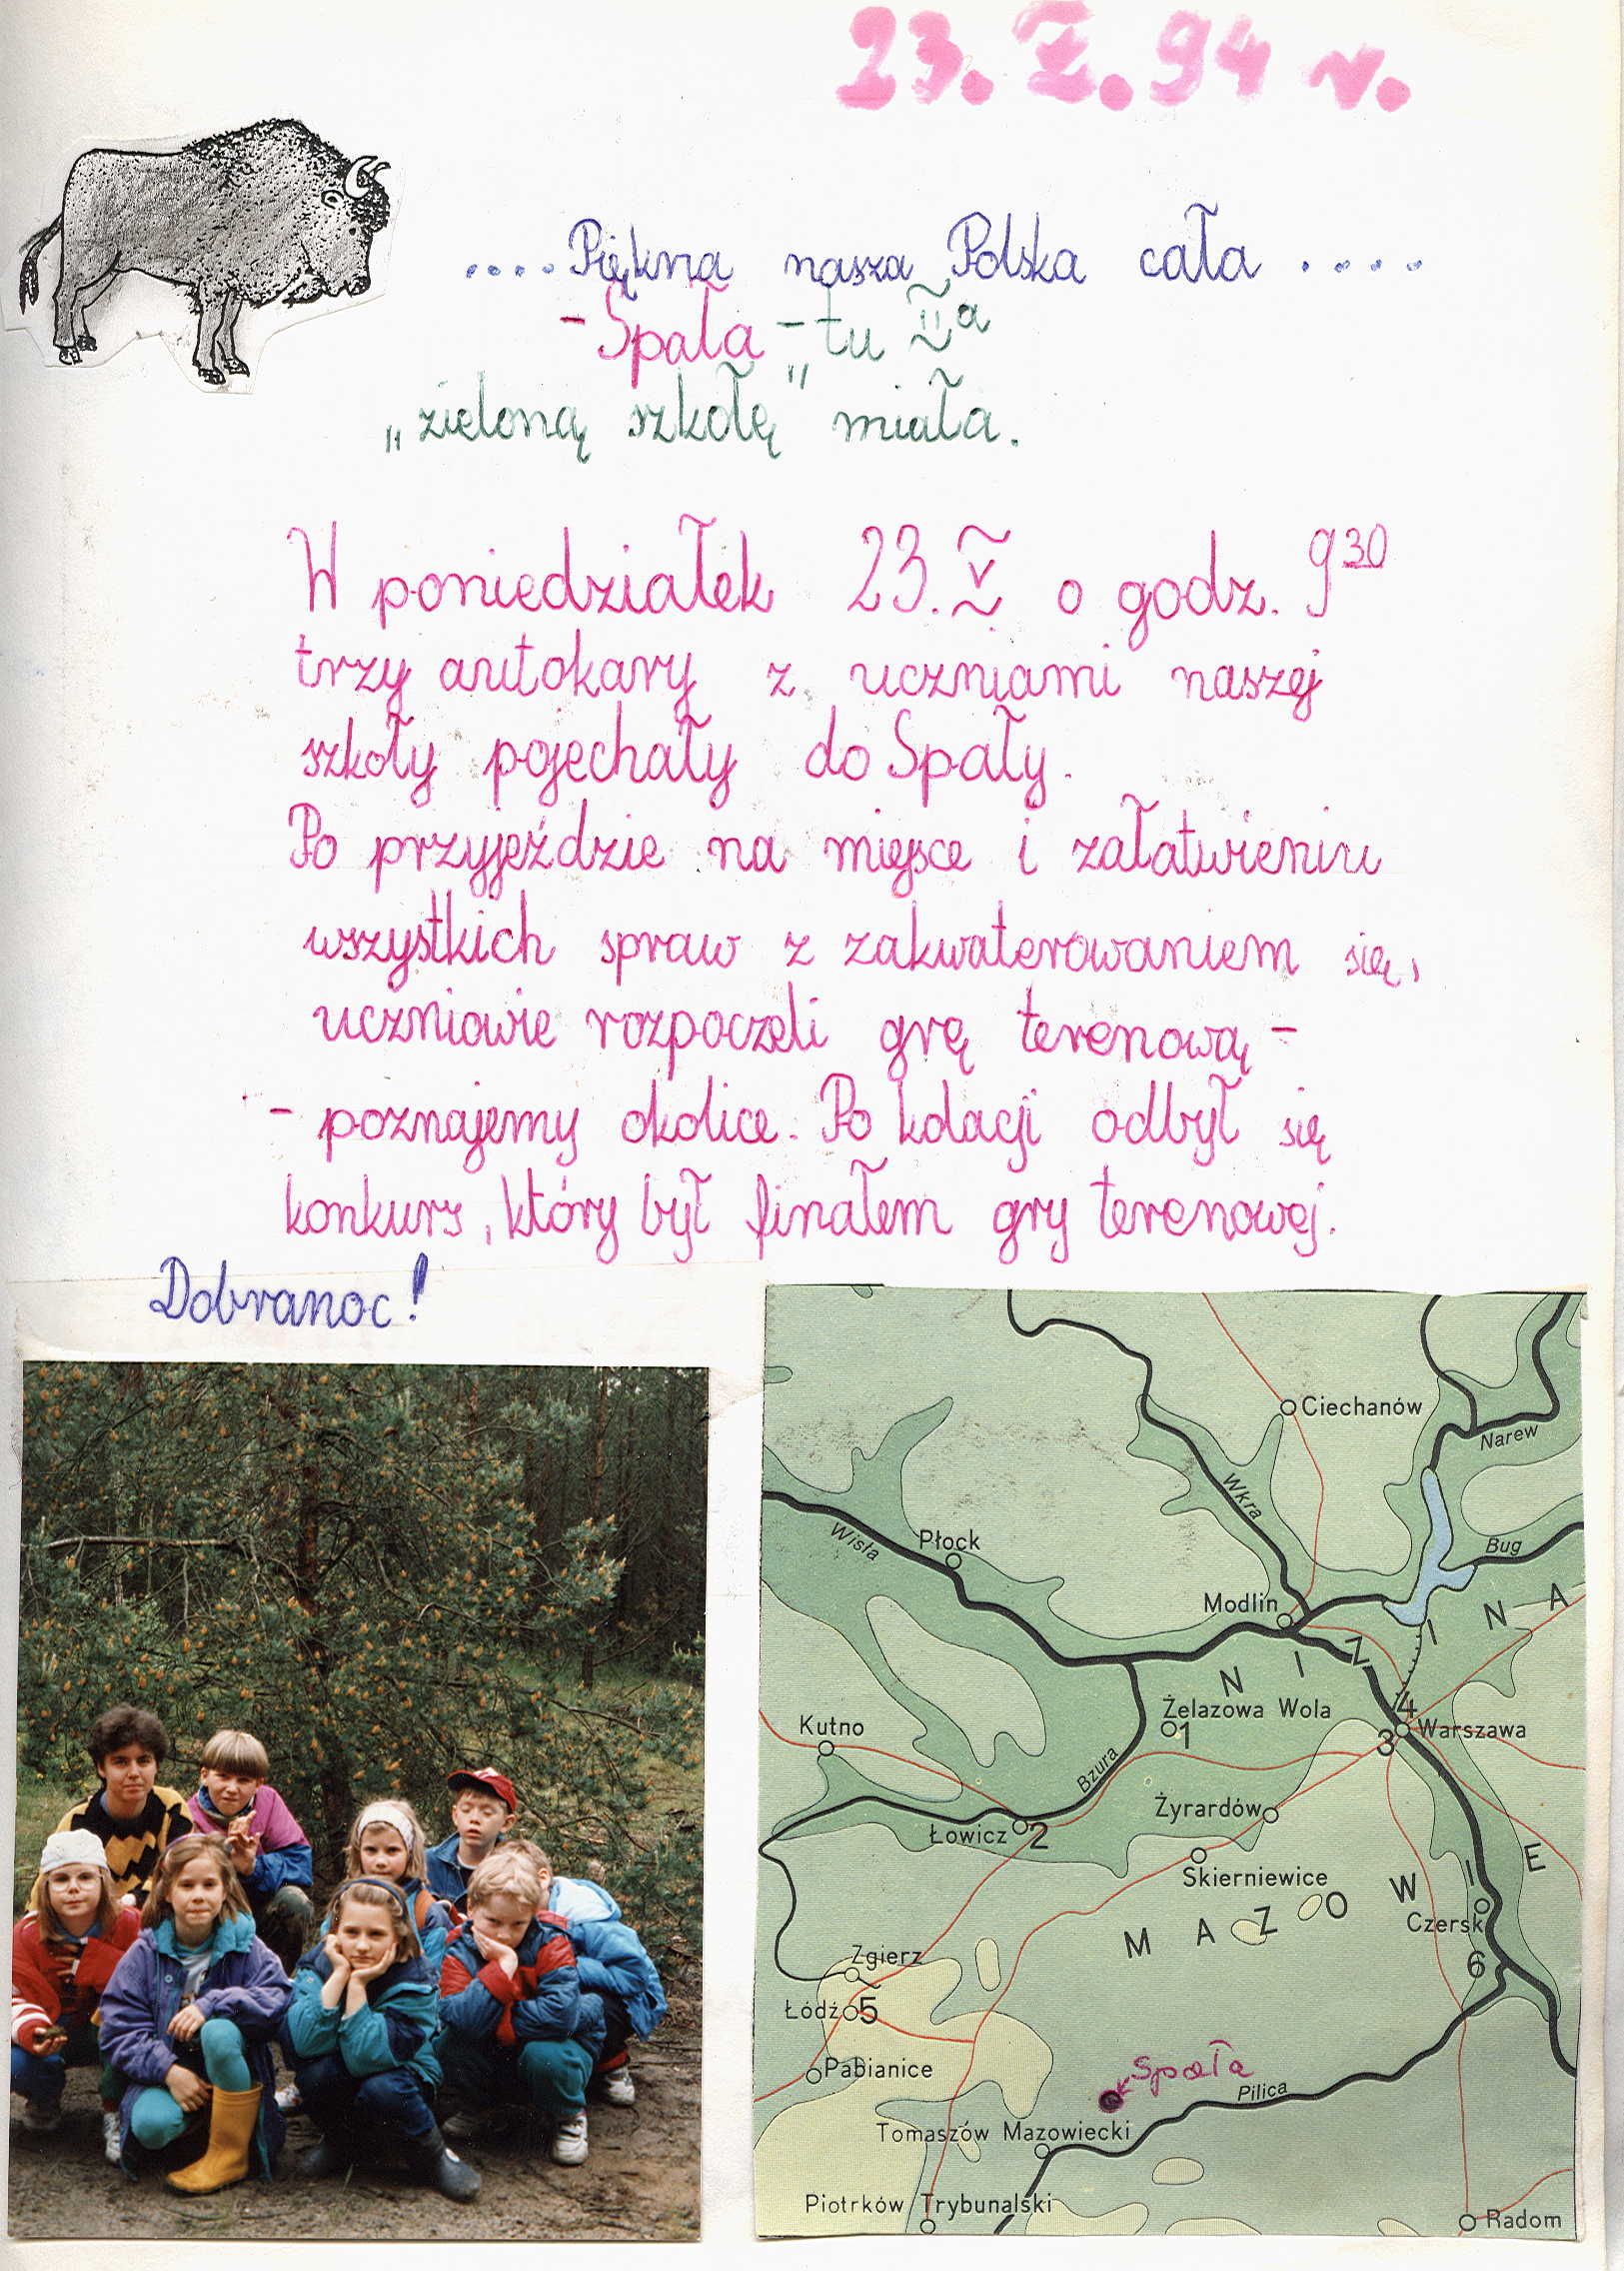 23. V. 94 r.
....Piękna nasza Polska cała ....
- Spała - tu II a
„zieloną szkołę" miała.
W poniedziałek 23. V o godz. 9 30
trzy autokary z uczniami naszej
szkoły pojechały do Spały.
Po przyjeździe na miejsce i załatwieniu
wszystkich spraw z zakwaterowaniem się,
uczniowie rozpoczeli grę terenową -
- poznajemy okolice. Po kolacji odbył się
konkurs, który był finałem gry terenowej.
Dobranoc!
Ciechanów
Narew
Wkra
Wisła
Płock
Bug
Modlin
NIZINA
Żelazowa Wola
1
4
Warszawa
3
Kutno
Bzura
Żyrardów
Łowicz 2
Skierniewice
MAZOWIE
Czersk
6
Zgierz
Łódź 5
Pabianice
Spała
Pilica
Tomaszów Mazowiecki
Piotrków Trybunalski
Radom